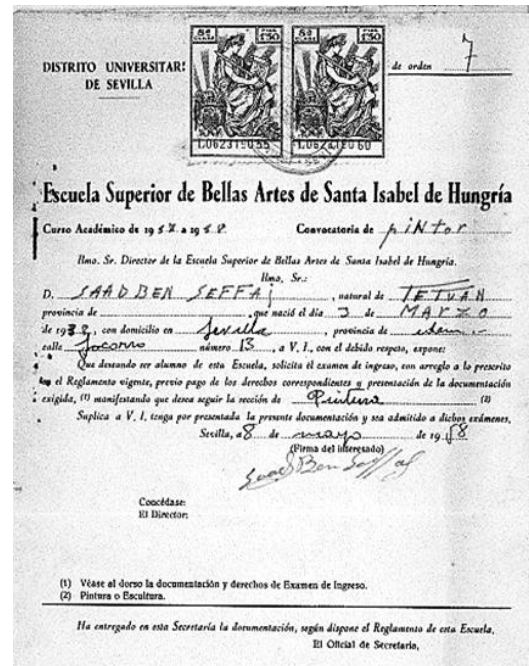 7
DISTRITO UNIVERSITAR
DE SEVILLA
de orden
Escuela Superior de Bellas Artes de Santa Isabel de Hungría
Curso Académico de 19 a 19 Convocatoria de piNtor
Ilmo. Sr. Director de la Escuela Superior de Bellas Artes de Santa Isabel de Hungría.
Ilmo. Sr.:
D. SAAD BEN SEFFAJ, natural de TETUÁN
provincia de , que nació el día 3 de MARZO
de 19, con domicilio en Sevilla, provincia de idem
calle Socorro número 13, a V. I., con el debido respeto, expone:
Que deseando ser alumno de esta Escuela, solicita el examen de ingreso, con arreglo a lo prescrito
en el Reglamento vigente, previo pago de los derechos correspondientes y presentación de la documentación
exigida, (1) manifestando que desea seguir la sección de Pintura (2)
Suplica a V. I. tenga por presentada la presente documentación y sea admitido a dichos exámenes.
Sevilla, a 8 de mayo de 1958
(Firma del interesado)
Saad Ben Seffaj
Concédase:
El Director:
(1) Véase al dorso la documentación y derechos de Examen de Ingreso.
(2) Pintura o Escultura.
Ha entregado en esta Secretaría la documentación, según dispone el Reglamento de esta Escuela.
El Oficial de Secretaría,